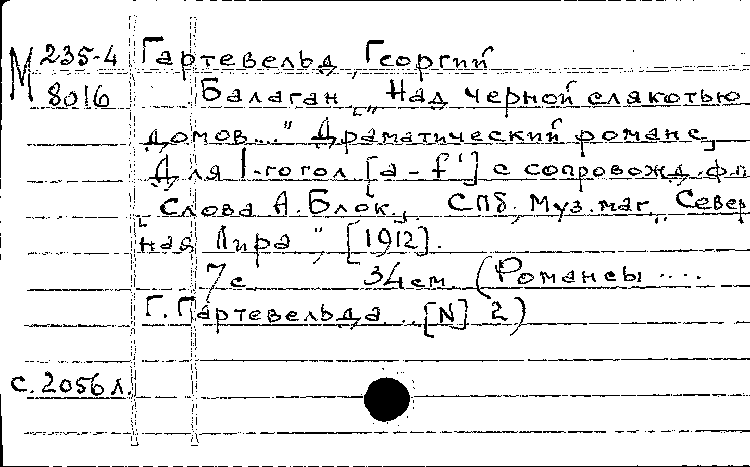 М 235-4 Гартевельд, Георгий
8016 Балаган „Над черной слякотью
домов..." Драматический романс,
Для 1-го гол [a - f¹] с сопровожд. ф.п
Слова А. Блок. СПб, Муз. маг. „Север
ная Лира", [1912].
7 с. 34 см. (Романсы ....
Г. Гартевельда ... [N] 2)
с. 2056 л.